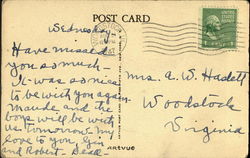 POST CARD
Wednesday -
Have missed
you so much -
It was so nice
to be with you again
Maude and the
boys will be with
us tomorrow. My
love to you,
and Robert -
Mrs. A. W.
Woodstock
Virginia
ARTVUE